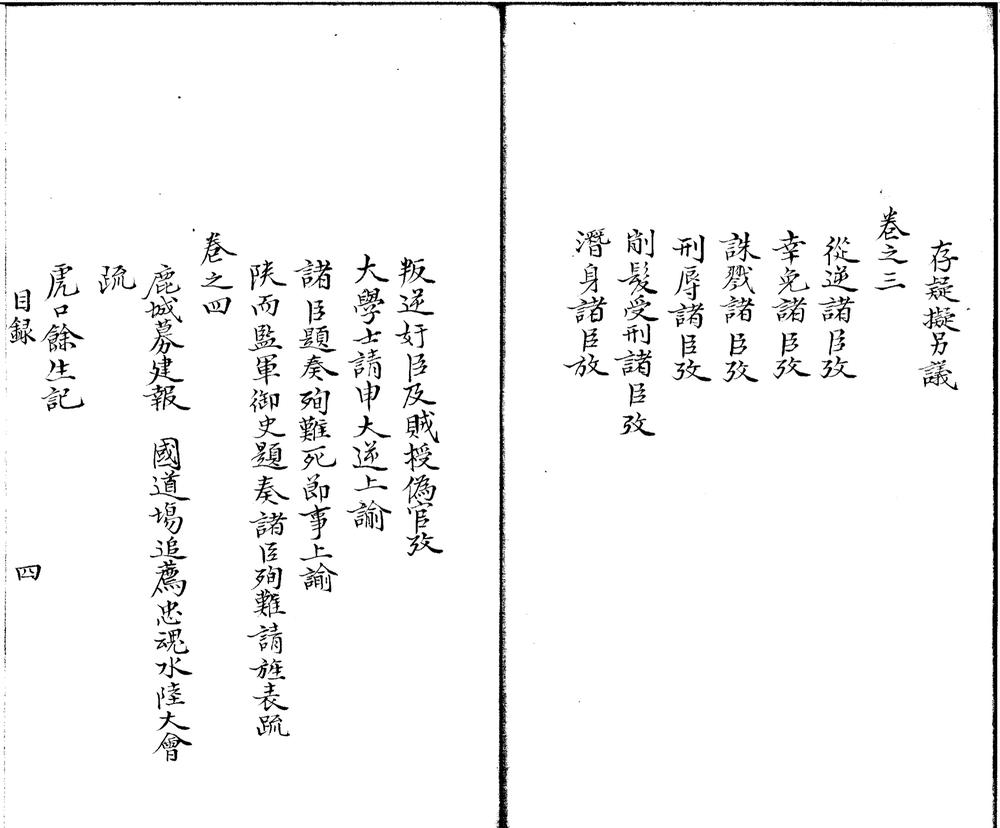 存疑擬另議
卷之三
從逆諸臣攷
幸免諸臣攷
誅戮諸臣攷
刑辱諸臣攷
削髮受刑諸臣攷
潛身諸臣放
叛逆奸臣及賊授偽官攷
大學士請申大逆上諭
諸臣題奏殉難死節事上諭
陝西監軍御史題奏諸臣殉難請旌表疏
卷之四
鹿城募建報　國道場追薦忠魂水陸大會
疏
虎口餘生記
目録　四